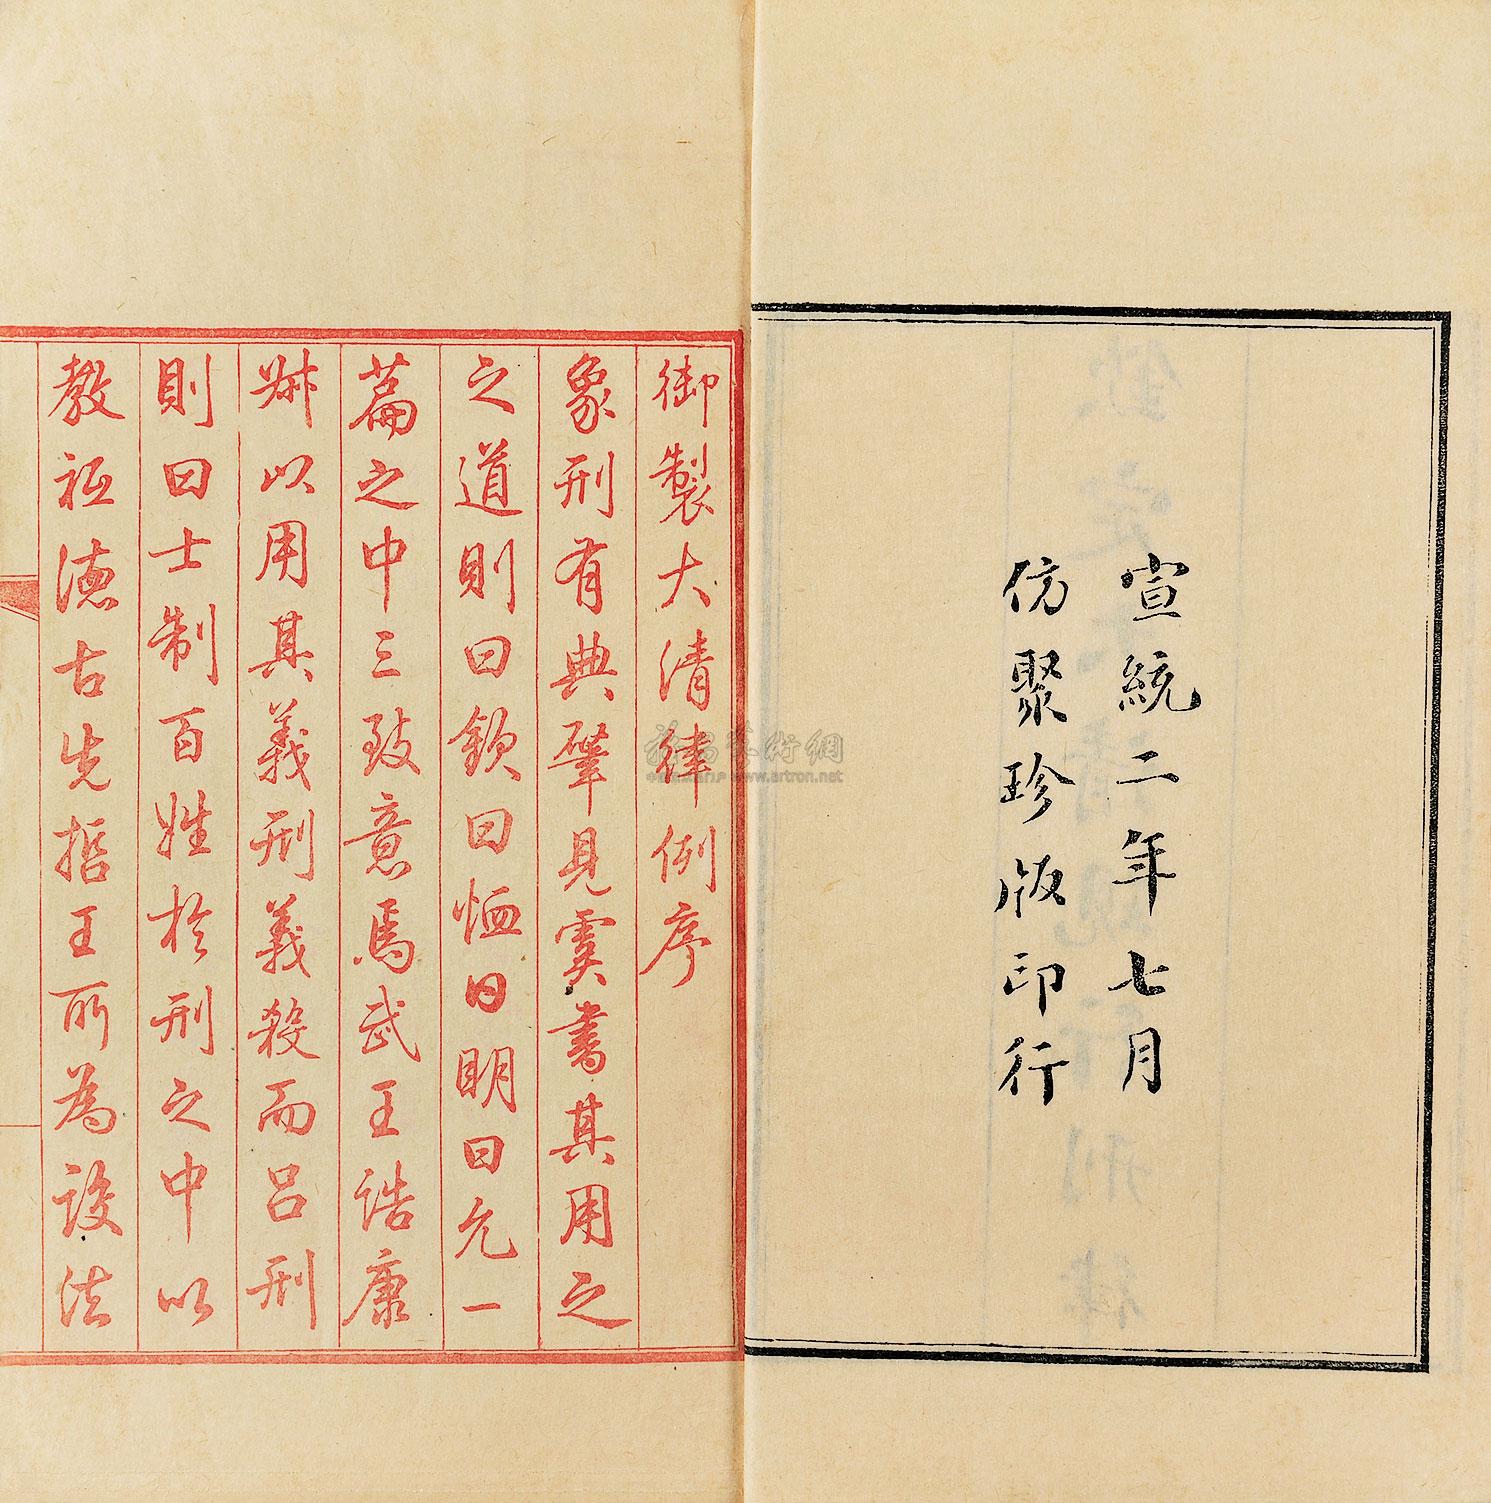 宣統二年七月
仿聚珍版印行
御製大清律例序
象刑有典肇見虞書其用之
之道則曰欽曰恤曰明曰允一
篇之中三致意焉武王誥康
叔以用其義刑義殺而呂刑
則曰士制百姓於刑之中以
教祗德古先哲王所為設法
雅昌藝術網
www.artron.net